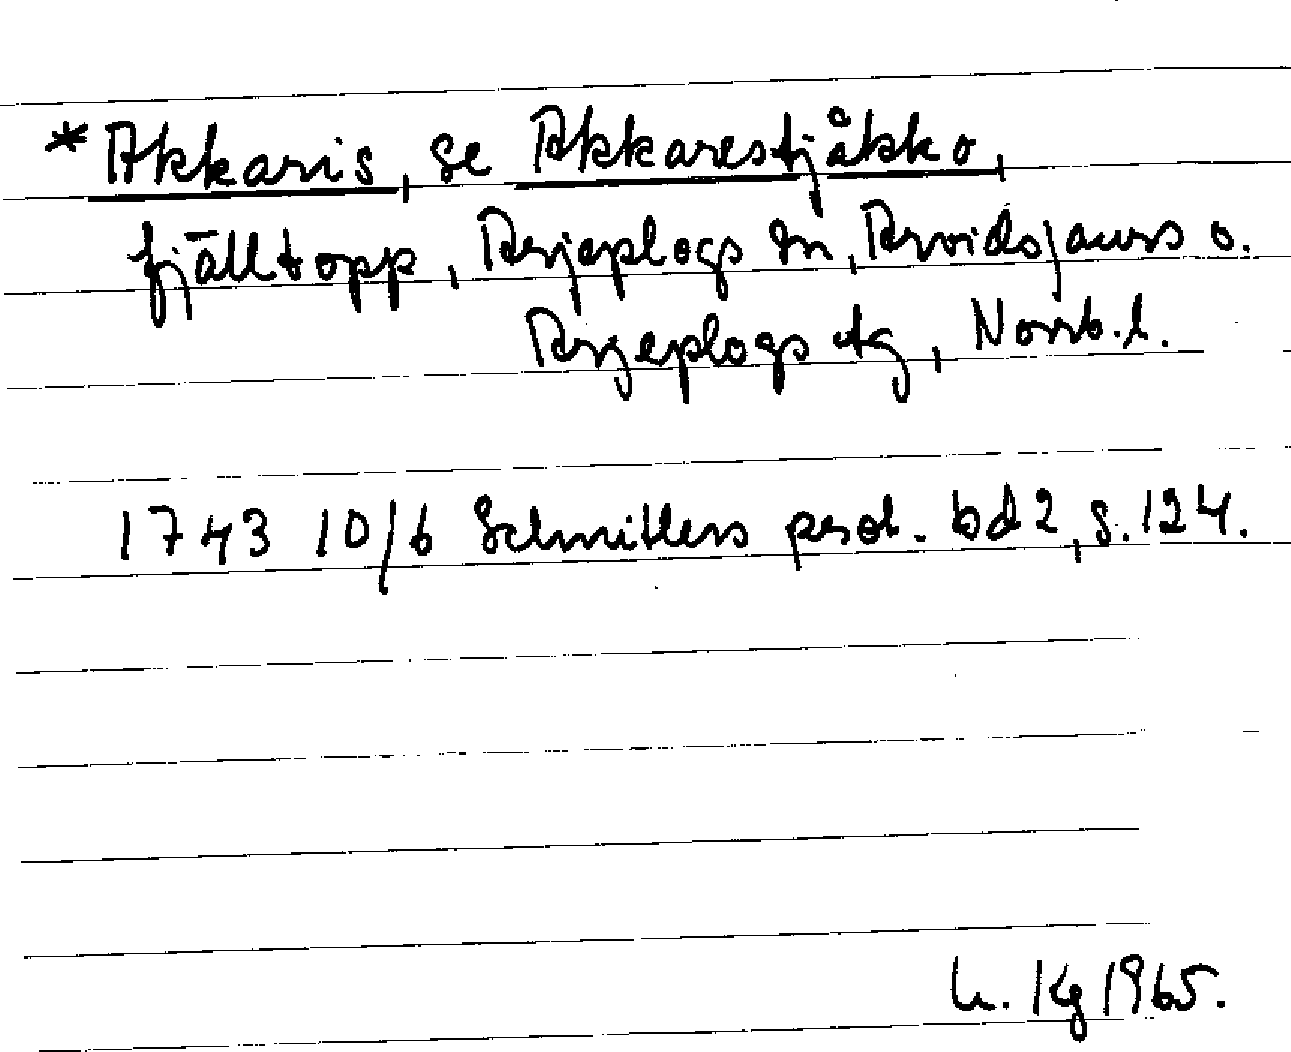 *Akkaris, se Akkarestjåkko,
fjälltopp, Arjeplogs sn, Arvidsjaurs o.
Arjeplogs tg, Norrb. l.
1743 10/6 Schnitlers prot. bd 2, s. 124.
1965.